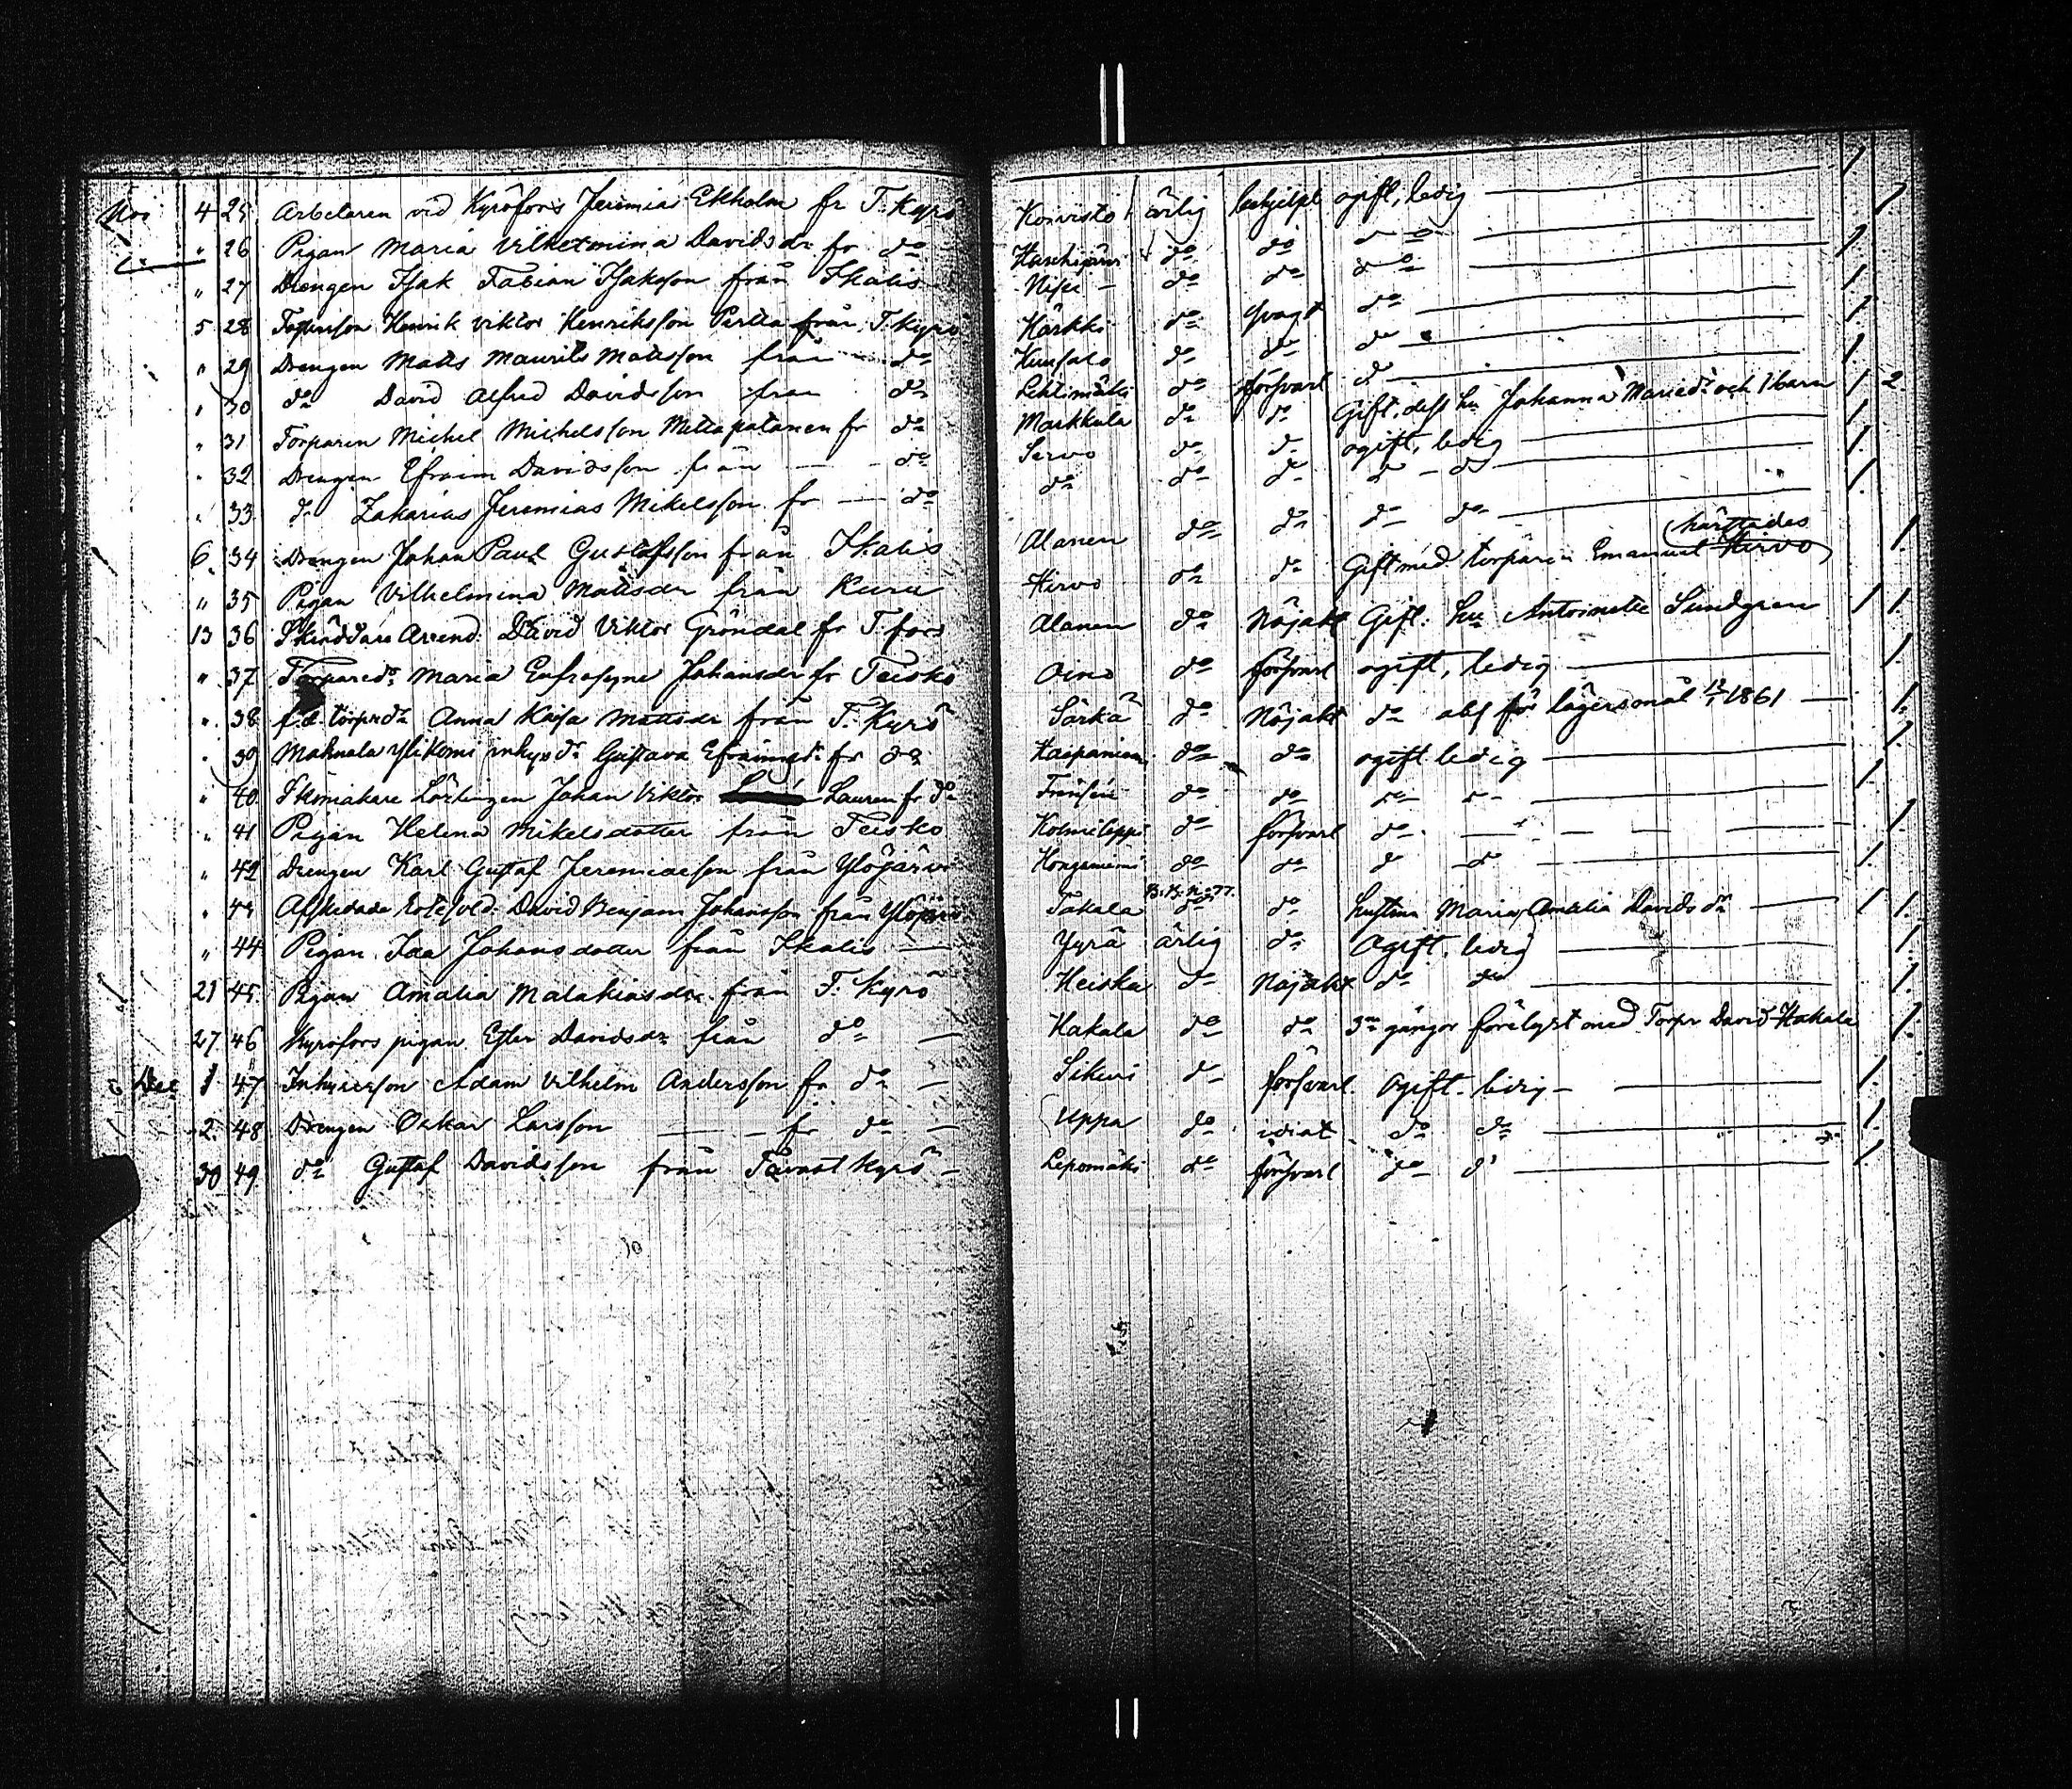 Nov 4 25 Arbetaren vid Kyröfors Jeremias Ekholm fr T. Kyrö Koivisto ärlig behjelpl ogift, ledig 1
" 26 Pigan Maria Vilhelmina Davidsdr fr do do do do 1
" 27 Drengen Isak Fabian Isaksson från Ikalis do do do 1
5 28 Henrik Viktor Henriksson Perttu från T. Kyrö Härkki do svagt do 1
" 29 Drengen Matts Maurits Mattsson från do do do do 1
" 30 do David Alfred Davidsson från do Lehtimäki do försvarl do 1
" 31 Torparen Michel Michelsson Mettapatanen fr do Markkula do do Gift, dess hu Johanna Mariedr och 1 barn 1 2
" 32 Drengen Efraim Davidsson från do Servo do do ogift, ledig 1
" 33 do Zakarias Jeremias Mikelsson fr do do do do do do 1
6 34 Drengen Johan Paul Gustafsson från Ikalis Alanen do do do do
" 35 Pigan Vilhelmina Mattsdr från Kuru Hirvo do do Gift med torparen Emanuel Hirvo härstädes 1
13 36 Skräddare Arrend. David Viktor Gröndal fr T.fors Alanen do Nöjakt Gift. hu Antoinette Sundgren 1 1
" 37 Torparedr Maria Eufrosyne Johansdr fr Teisko Oino do försvarl ogift, ledig 1
" 38 f.d. torpredr Anna Kajsa Mattsdr från T. Kyrö Särkä do Nöjakt do abs för lägersmål 1861 1
" 39 Mahnala Ylikomi inhysdr Gustava Efraimsdr fr do do do ogift ledig 1
" 40 Skomakare Lärlingen Johan Viktor Lauren fr do do do do do 1
" 41 Pigan Helena Mikelsdotter från Teisko do försvarl do 1
" 42 Drengen Karl Gustaf Jeremiasson från Ylöjärvi do do do do 1
" 43 Afskedade David Benjam Johansson från Ylöjärvi Takala B.B. No 77. do do hustrun Maria Amalia Davidsdr 1 1
" 44 Pigan Ida Johansdotter från Ikalis Yyrä ärlig do Ogift. ledig 1
21 45 Pigan Amalia Malakiasdr från T. Kyrö Heiska do Nöjakt do do 1
27 46 Kyröfors pigan Ester Davidsdr från do Hakala do do 3ne gångor förelyst med Torpr David Hakala 1
Dec 1 47 Inhyseson Adam Vilhelm Andersson fr do Sikuri do försvarl. Ogift. ledig 1
2 48 Drengen Oskar Larsson fr do Uppa do idiot do do 1
30 49 do Gustaf Davidsson från Tavastkyrö Lepomäki do försvarl do do 1